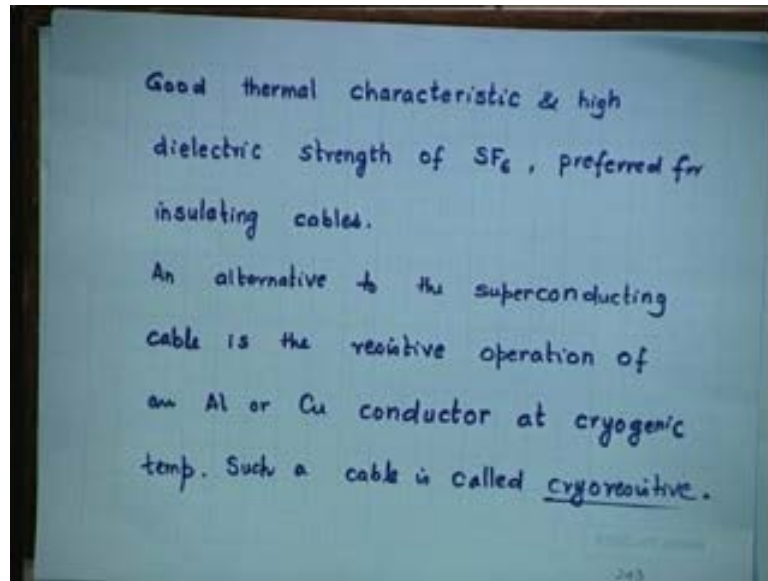 Good thermal characteristic & high
dielectric strength of SF₆, preferred for
insulating cables.
An alternative to the superconducting
cable is the resistive operation of
an Al or Cu conductor at cryogenic
temp. Such a cable is called cryoresistive.